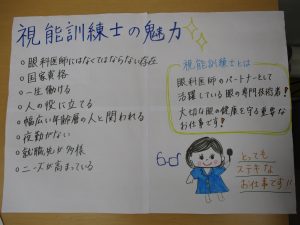 視能訓練士の魅力
○眼科医師にはなくてはならない存在
○国家資格
○一生働ける
○人の役に立てる
○幅広い年齢層の人と関われる
○夜勤がない
○就職先が多様
○ニーズが高まっている
視能訓練士とは
眼科医師のパートナーとして
活躍している眼の専門技術者!
大切な眼の健康を守る重要な
お仕事です!
とっても
ステキな
お仕事です!!